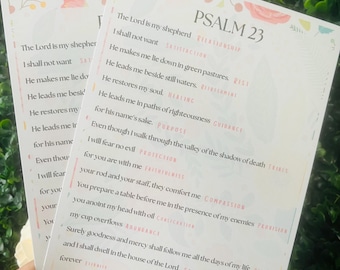 PSALM 23
The Lord is my shepherd RELATIONSHIP
I shall not want SATISFACTION
He makes me lie down in green pastures. REST
He leads me beside still waters. REFRESHMENT
He restores my soul. HEALING
He leads me in paths of righteousness GUIDANCE
for his name's sake. PURPOSE
Even though I walk through the valley of the shadow of death TESTING
I will fear no evil PROTECTION
for you are with me FAITHFULNESS
your rod and your staff, they comfort me COMPASSION
You prepare a table before me in the presence of my enemies PROVISION
you anoint my head with oil CONSECRATION
my cup overflows ABUNDANCE
Surely goodness and mercy shall follow me all the days of my life
and I shall dwell in the house of the Lord
forever
The Lord is my shepherd
I shall not want
He makes me lie d
He leads me besid
He restores my
He leads me in
for his name's
Even though
I will fear no
for you are
your rod
You prep
you ano
my cup
Surely
and I s
forever